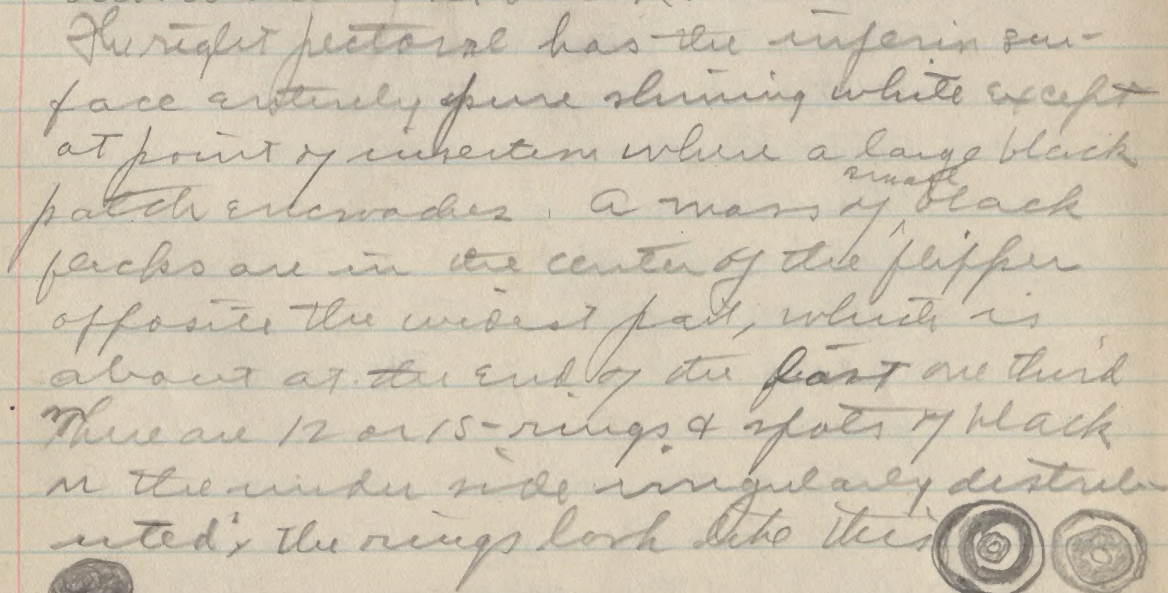 The right pectoral has the inferior sur-
face entirely pure shining white except
at point of insertion where a large black
patch encroaches. A mass of small black
flecks are in the center of the flipper
opposite the widest part, which is
about at the end of the first one third
There are 12 or 15 - rings & spots of black
on the under side irregularly distrib
uted; the rings look like this